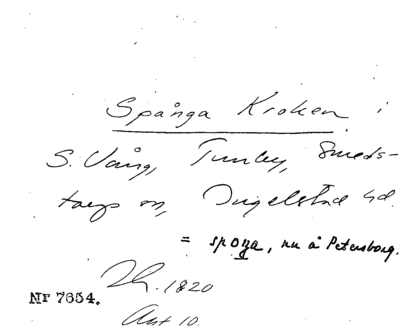 Spånga Kroken i
S. Vång, Tunby, Smeds-
torps sn, Ingelstad hd.
= spoga, nu å Petersborg.
1820
Nr 7654.
Akt 10.